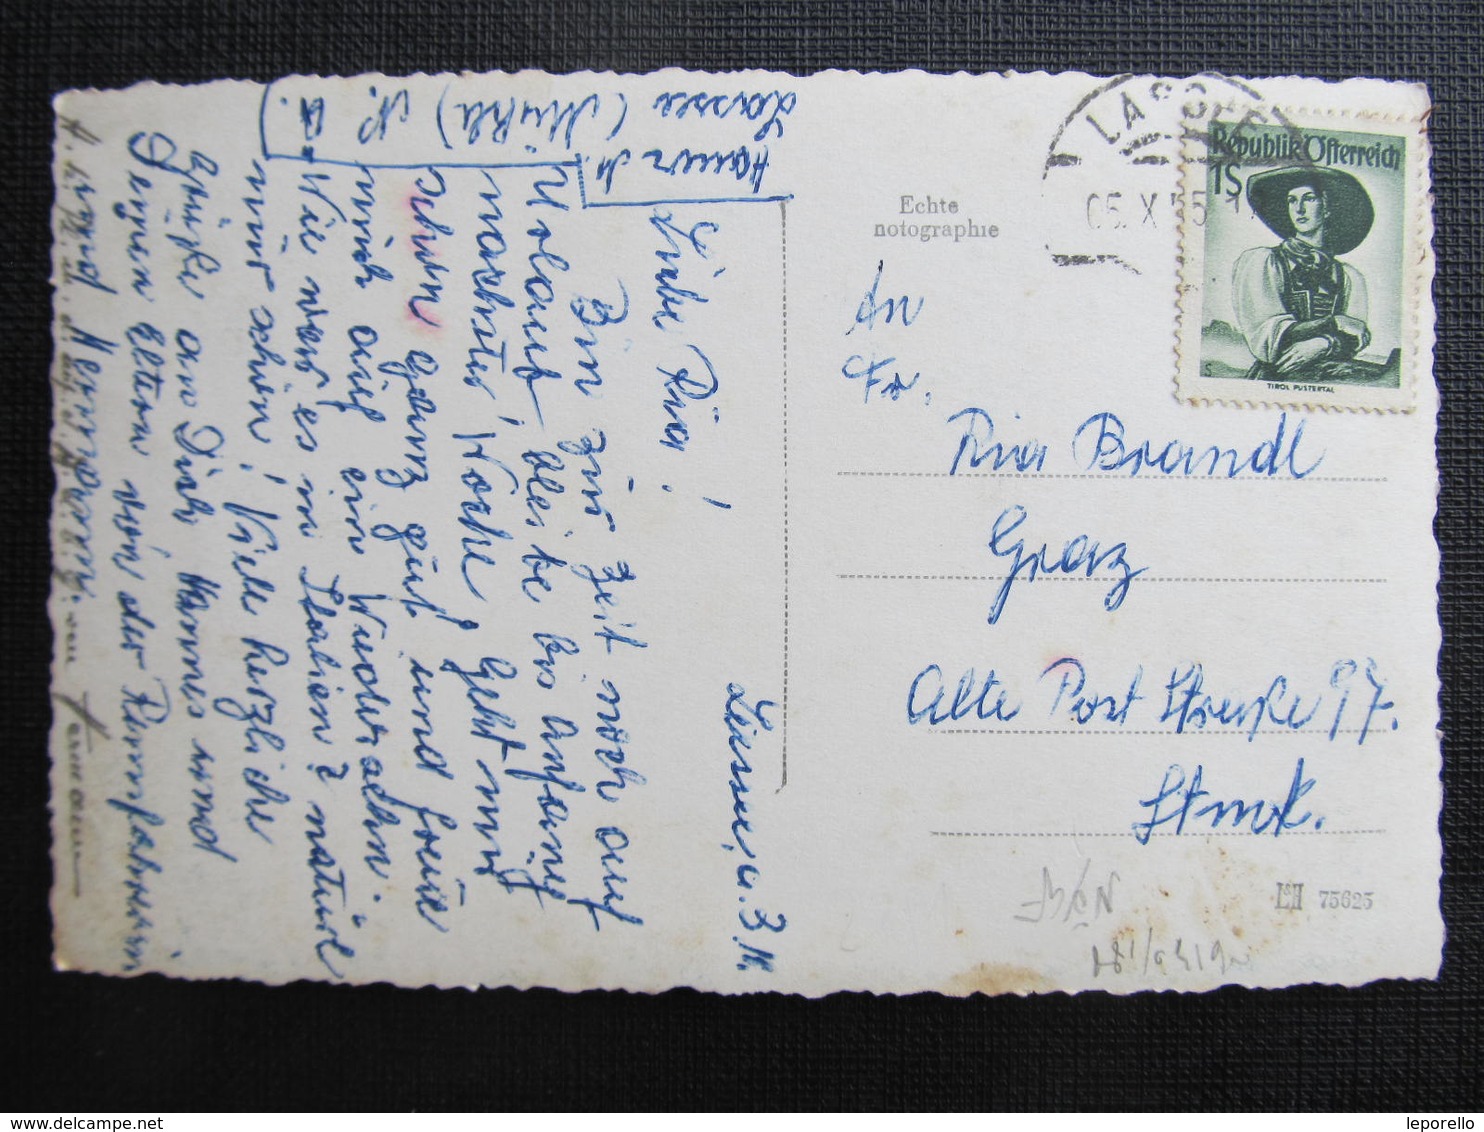 Hauer H.
Lassee (Mühle)
N. Ö.
Lassee, u. 3. X.
Liebe Ria!
Bin zur Zeit noch auf
Urlaub, bleibe bis Anfang
nächster Woche, Geht mir
schon ganz gut und freue
mich auf ein Wiedersehn.
Wie war es in Italien? natürl
nur schön! Viele herzliche
Grüße an Dich Hannes und
Deinen Eltern von der Rennfahrerin
und Hermann
Hermann
Echte
notographie
An
Fr.
Ria Brandl
Graz
Alte Post Straße 97.
Stmk.
LASSEE
05. X 55
Republik Österreich
1S
S
TIROL PUSTERTAL
L&H 75625
leporello